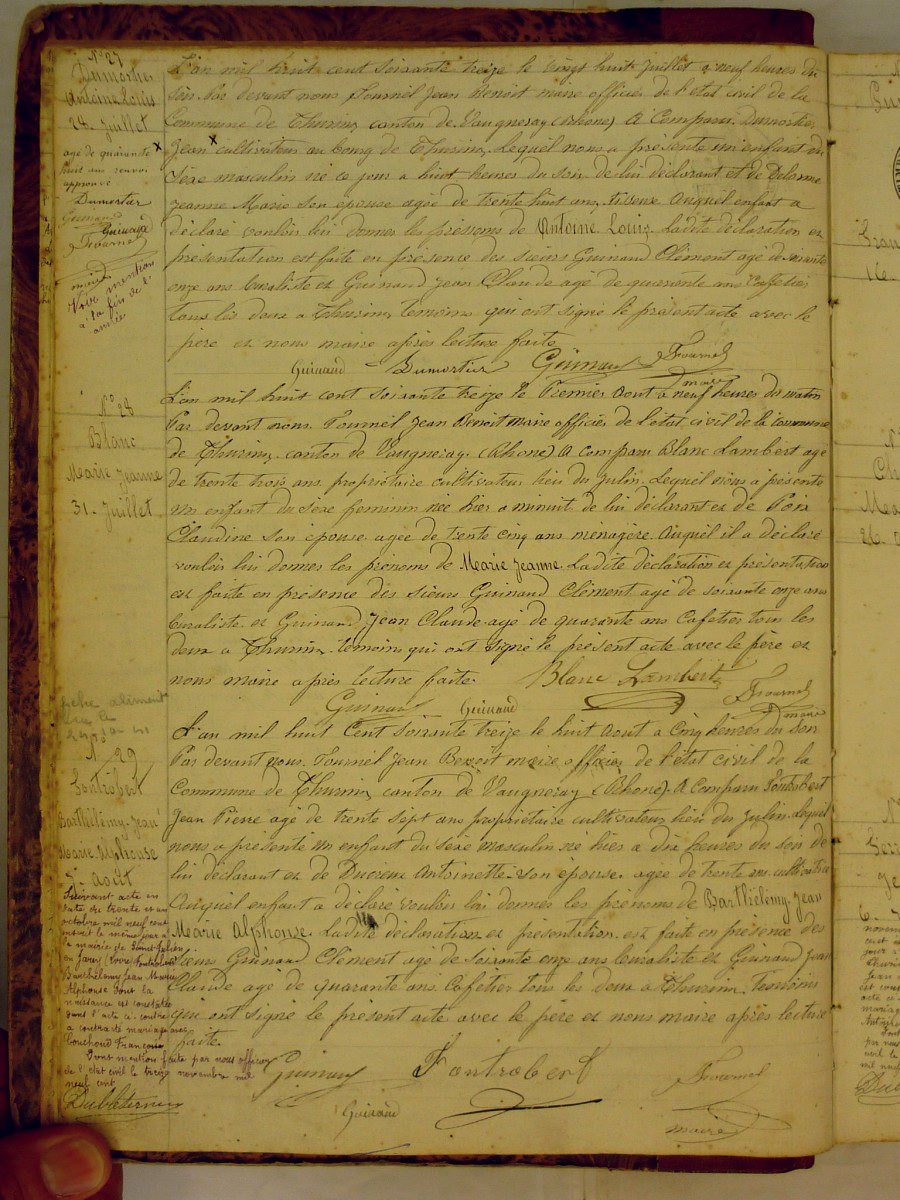 N° 27
Dumortier
Antoine Louis
28 Juillet
agé de quarante
huit ans renvoi
approuvé
Dumortier
Guinand
Guinand
Fournel
maire
Voir mention
à la fin de l'
année
L'an mil huit cent soixante treize le vingt huit Juillet à neuf heures du
soir. Par devant nous Fournel Jean Benoit maire officier de l'état civil de la
Commune de Thurins canton de Vaugneray (Rhône) A Comparu Dumortier
Jean x cultivateur au bourg de Thurins. Lequel nous a présenté un enfant du
Sexe masculin né ce jour a huit heures du soir de lui déclarant et de Delorme
Jeanne Marie Son épouse agée de trente huit ans, tisseuse Auquel enfant a
déclaré vouloir lui donner les prénoms de Antoine Louis. Ladite déclaration et
présentation est faite en présence des sieurs Guinand Clément agé de soixante
onze ans buraliste et Guinand Jean Claude agé de quarante ans cafetier
tous les deux a Thurins temoins qui ont signé le présent acte avec le
père et nous maire après lecture faite
Guinand Dumortier Guinand Fournel
maire
N° 28
Blanc
Marie Jeanne
31 Juillet
L'an mil huit cent soixante treize le Premier Aout a neuf heures du matin
Par devant nous. Fournel Jean Benoit maire officier de l'état civil de la commune
de Thurins. canton de Vaugneray. (Rhone) A comparu Blanc Lambert agé
de trente trois ans. propriétaire cultivateur lieu du Julin. Lequel nous a présenté
un enfant du sexe feminin née hier a minuit de lui déclarant et de
Claudine Son épouse agée de trente cinq ans ménagère Auquel il a déclaré
vouloir lui donner les prénoms de Marie Jeanne. Ladite déclaration et présentation
est faite en présence des sieurs Guinand Clément agé de soixante onze ans
buraliste. et Guinand Jean Claude agé de quarante ans Cafetier tous les
deux a Thurins. temoins qui ont signé le présent acte avec le père et
nous maire après lecture faite. Blanc Lambert
Guinand Guinand Fournel
maire
N° 29
Fontrobert
Barthélémy Jean
Marie Alphonse
7 Août
L'an mil huit Cent soixante treize le huit Aout a Cinq heures du Soir
Par devant nous. Fournel Jean Benoit maire officier de l'état civil de la
Commune de Thurins canton de Vaugneray (Rhône). A Comparu Fontrobert
Jean Pierre agé de trente sept ans propriétaire cultivateur lieu du Julin. Lequel
nous a présenté un enfant du sexe masculin né hier a dix heures du soir de
lui déclarant et de Ducreux Antoinette. Son épouse. agée de trente ans cultivatrice
Auquel enfant a déclaré vouloir lui donner les prénoms de Barthélémy Jean
Marie Alphonse. Ladite déclaration et présentation. est faite en présence des
sieurs Guinand Clément agé de soixante onze ans buraliste et Guinand Jean
Claude agé de quarante ans. Cafétier tous les deux a Thurins. Temoins
qui ont signé le présent acte avec le père et nous maire après lecture
faite.
Guinand Fontrobert Fournel
Guinand maire
Suivant acte en
date du trente et un
octobre mil neuf cent
inscrit le même jour à
la mairie de Saint Julien
en Jarez (Loire) Fontrobert
Barthélemy Jean Marie
Alphonse dont la
naissance est constatée
dans l'acte ci-contre
a contracté mariage avec
Couchoud Françoise
Dont mention faite par nous officier
de l'état civil le treize novembre mil
neuf cent